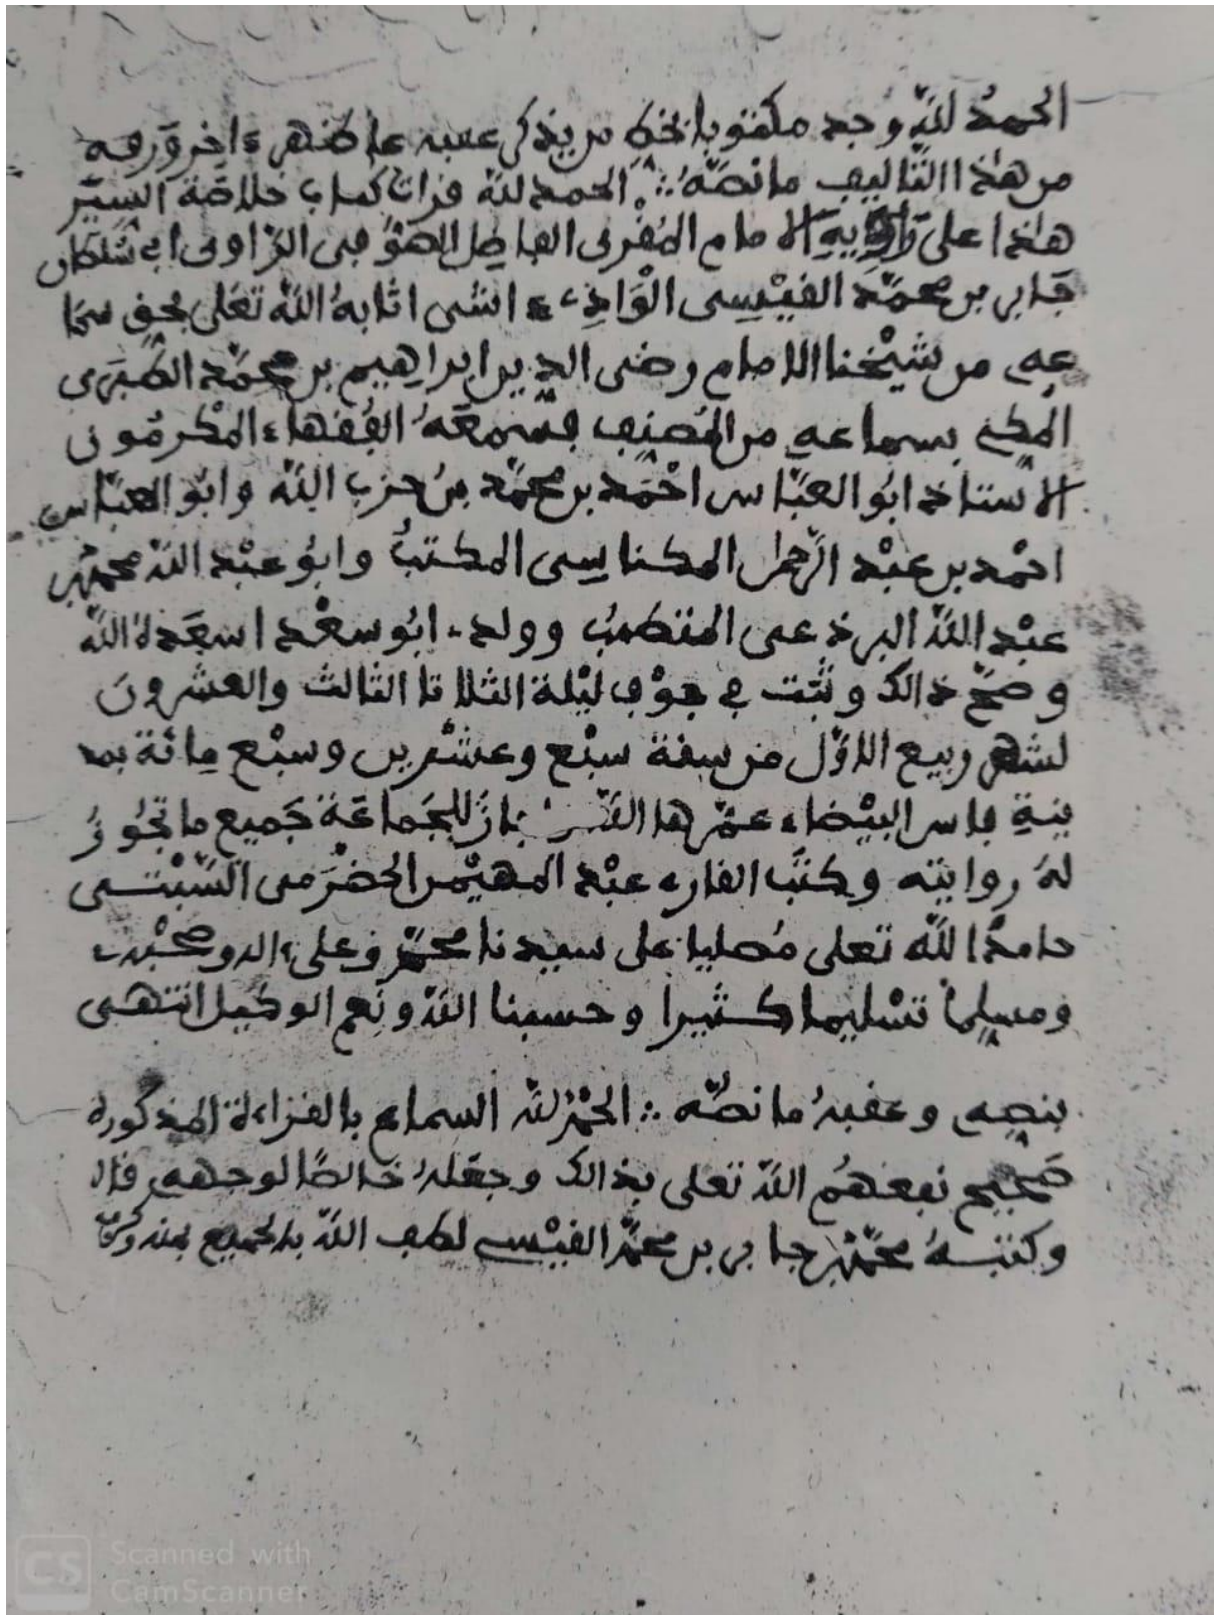 الحمد لله وجد مكتوبا بخط من يذكر عقبه على ظهر ءاخر ورقة
من هذا التاليف ما نصه ∴ الحمد لله قرات كتاب خلاصة السير
هذا على راويه الامام المقرئ الفاضل الصوفي الراوي ابي سلطان
جابر بن محمد القيسي الوادي ءاشي اثابه الله تعلى بحق سما
عه من شيخنا الامام رضي الدين ابراهيم بن محمد الطبري
المكي بسماعه من المصنف فسمعه الفقهاء المكرمون
الاستاذ ابو العباس احمد بن محمد بن حزب الله وابو العباس
احمد بن عبد الرحمن المكناسي المكتب وابو عبد الله محمد بن
عبد الله البرذعي المتطبب وولده ابو سعد اسعده الله
وصح ذالك وثبت في جوف ليلة الثلاثا الثالث والعشرون
لشهر ربيع الاول من سنة سبع وعشرين وسبع مائة بمد
ينة فاس البيضاء عمرها الله للجماعة جميع ما تجوز
له روايته وكتب القارء عبد المهيمن الحضرمي السبتي
حامدا لله تعلى مصليا على سيدنا محمد وعلى ءاله وصحبه
ومسلما تسليما كثيرا وحسبنا الله ونعم الوكيل انتهى
بنصه وعقبه ما نصه ∴ الحمد لله السماع بالقراءة المذكورة
صحيح نفعهم الله تعلى بذالك وجعله خالصا لوجهه قاله
وكتبه محمد بن جابر بن محمد القيسي لطف الله بالجميع بمنه وكرمه
Scanned with
CamScanner